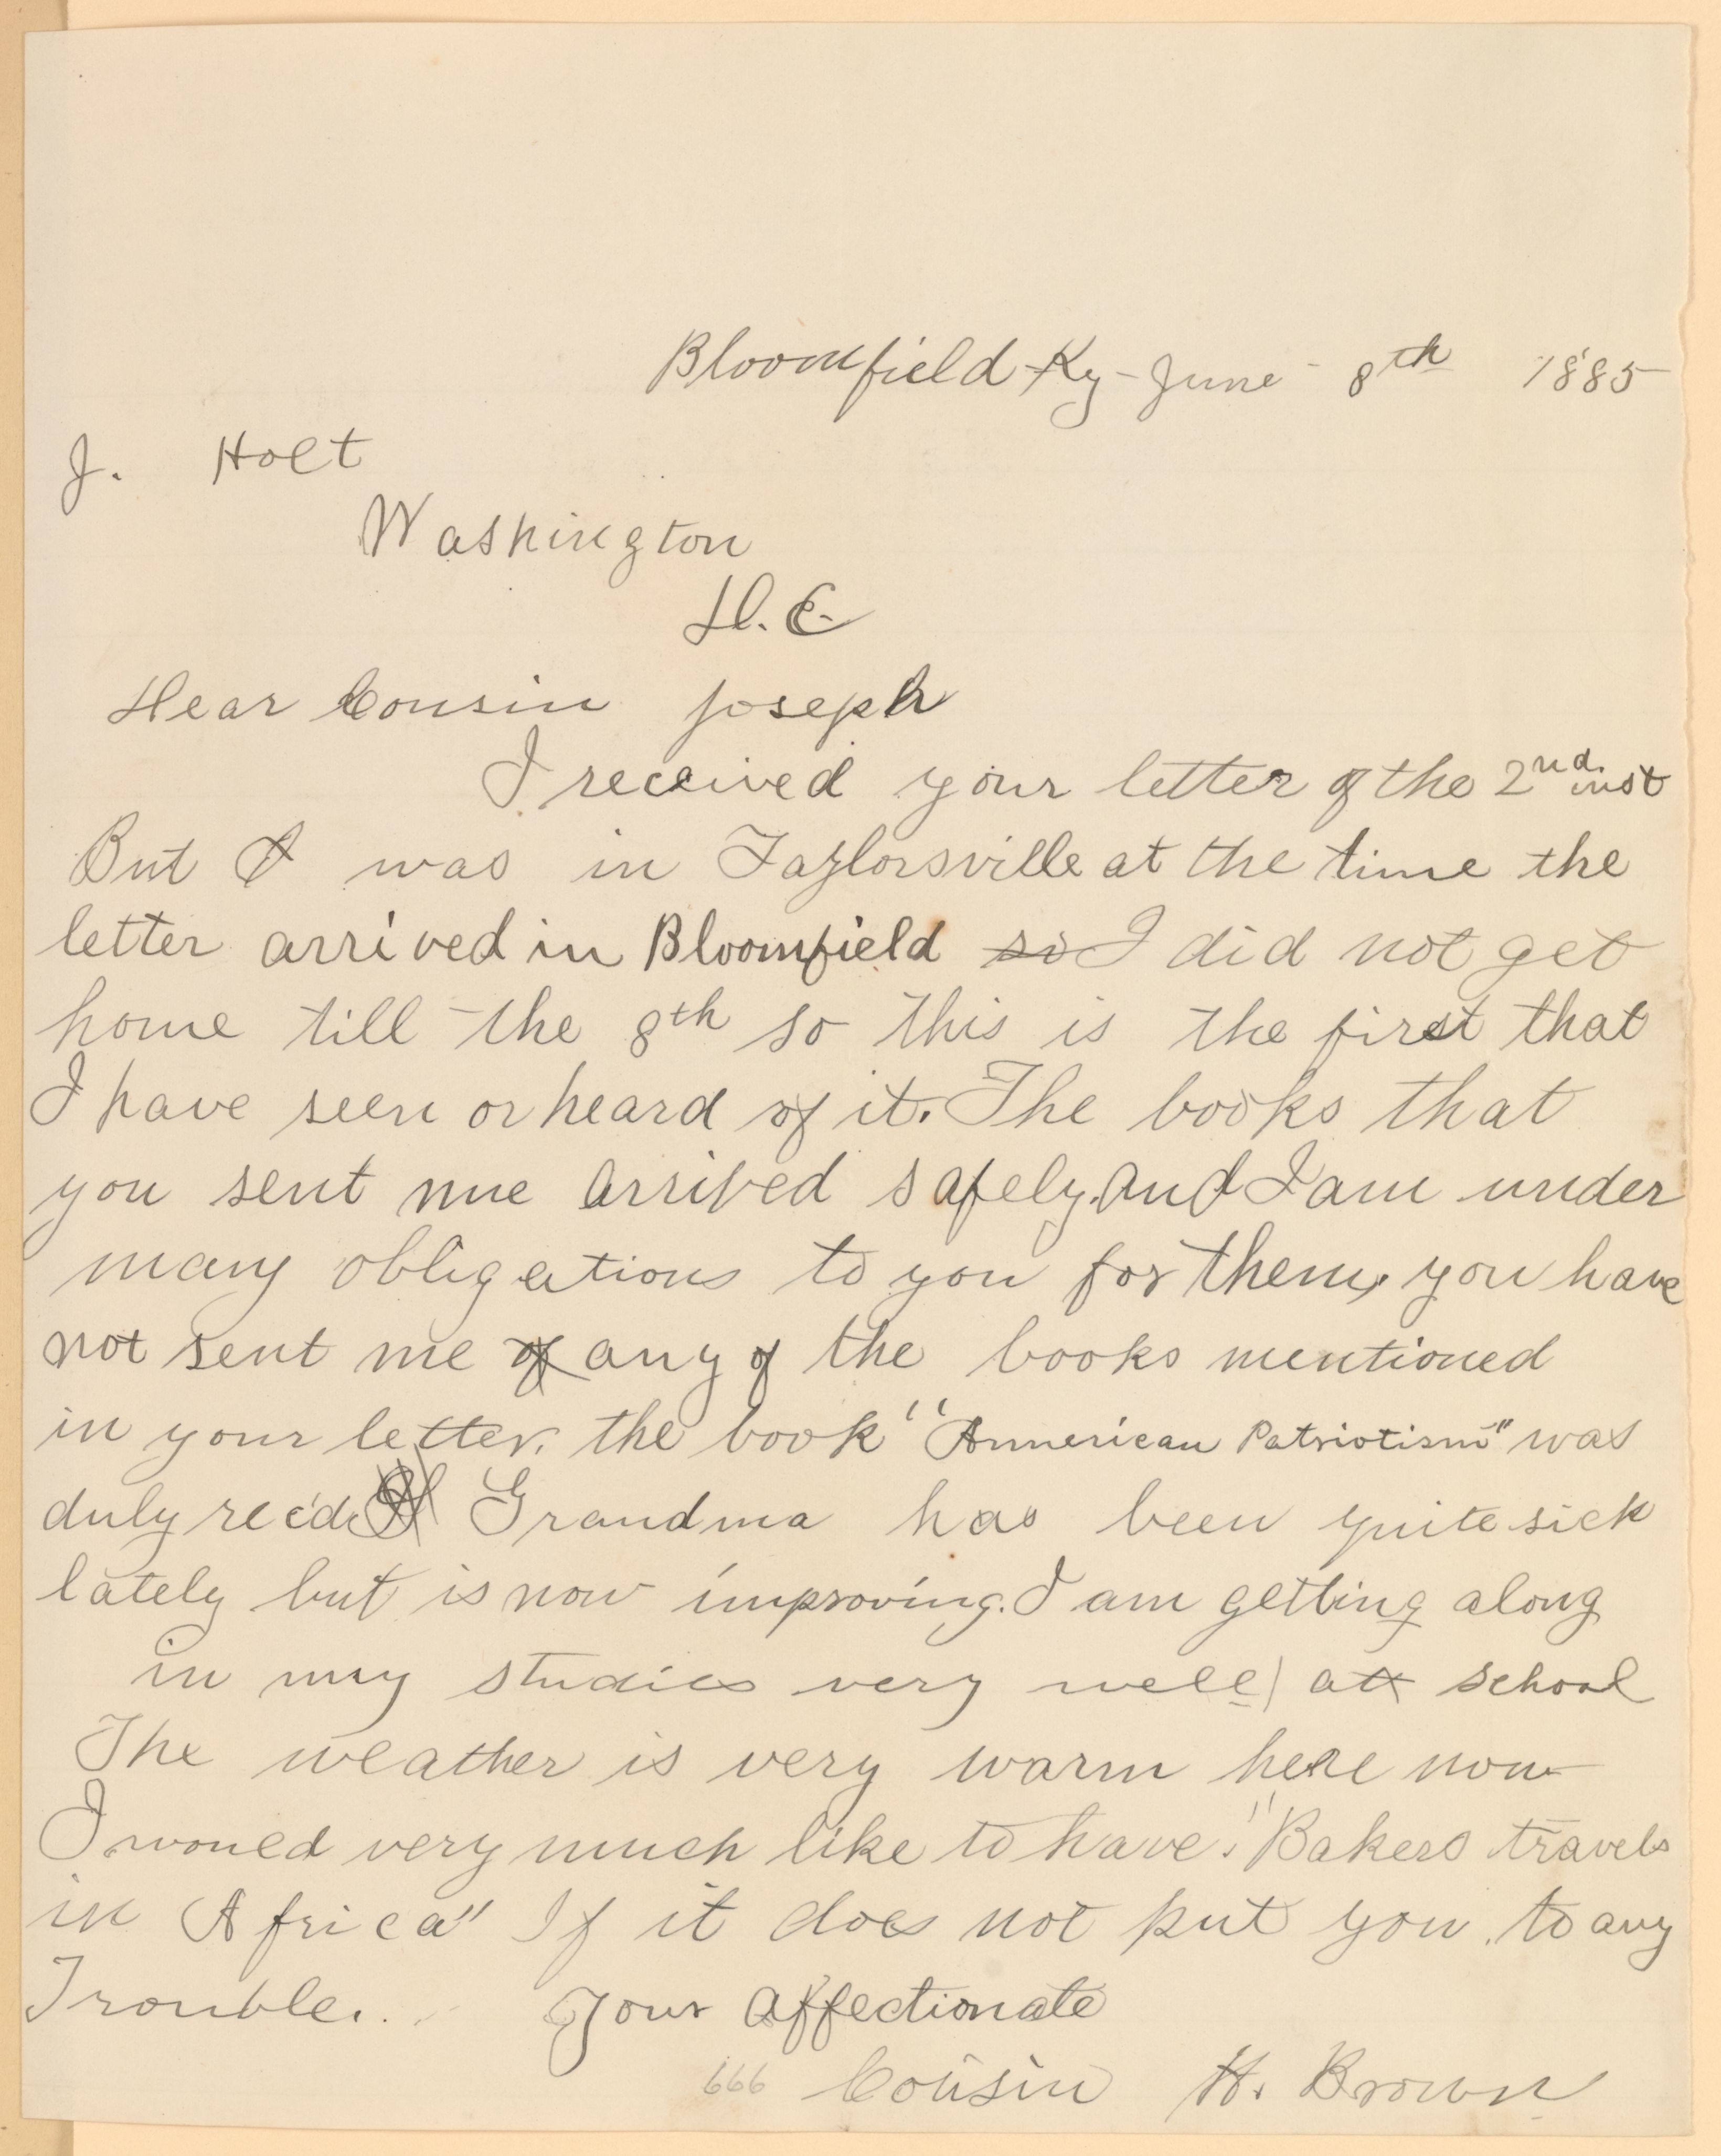 Bloomfield Ky - June - 8th 1885
J. Holt
Washington
D. C.
Dear Cousin Joseph
I received your letter of the 2nd inst
But I was in Taylorsville at the time the
letter arrived in Bloomfield so I did not get
home till the 8th so this is the first that
I have seen or heard of it. The books that
you sent me arrived safely. And I am under
many obligations to you for them, you have
not sent me of any of the books mentioned
in your letter. the book "Ammerican Patriotism" was
duly rec'd Grandma has been quite sick
lately but is now improving. I am getting along
in my studies very well) at school
The weather is very warm here now
I would very much like to have. "Bakers travels
in Africa" If it does not put you to any
Trouble. Your Affectionate
666 Cousin H. Brown